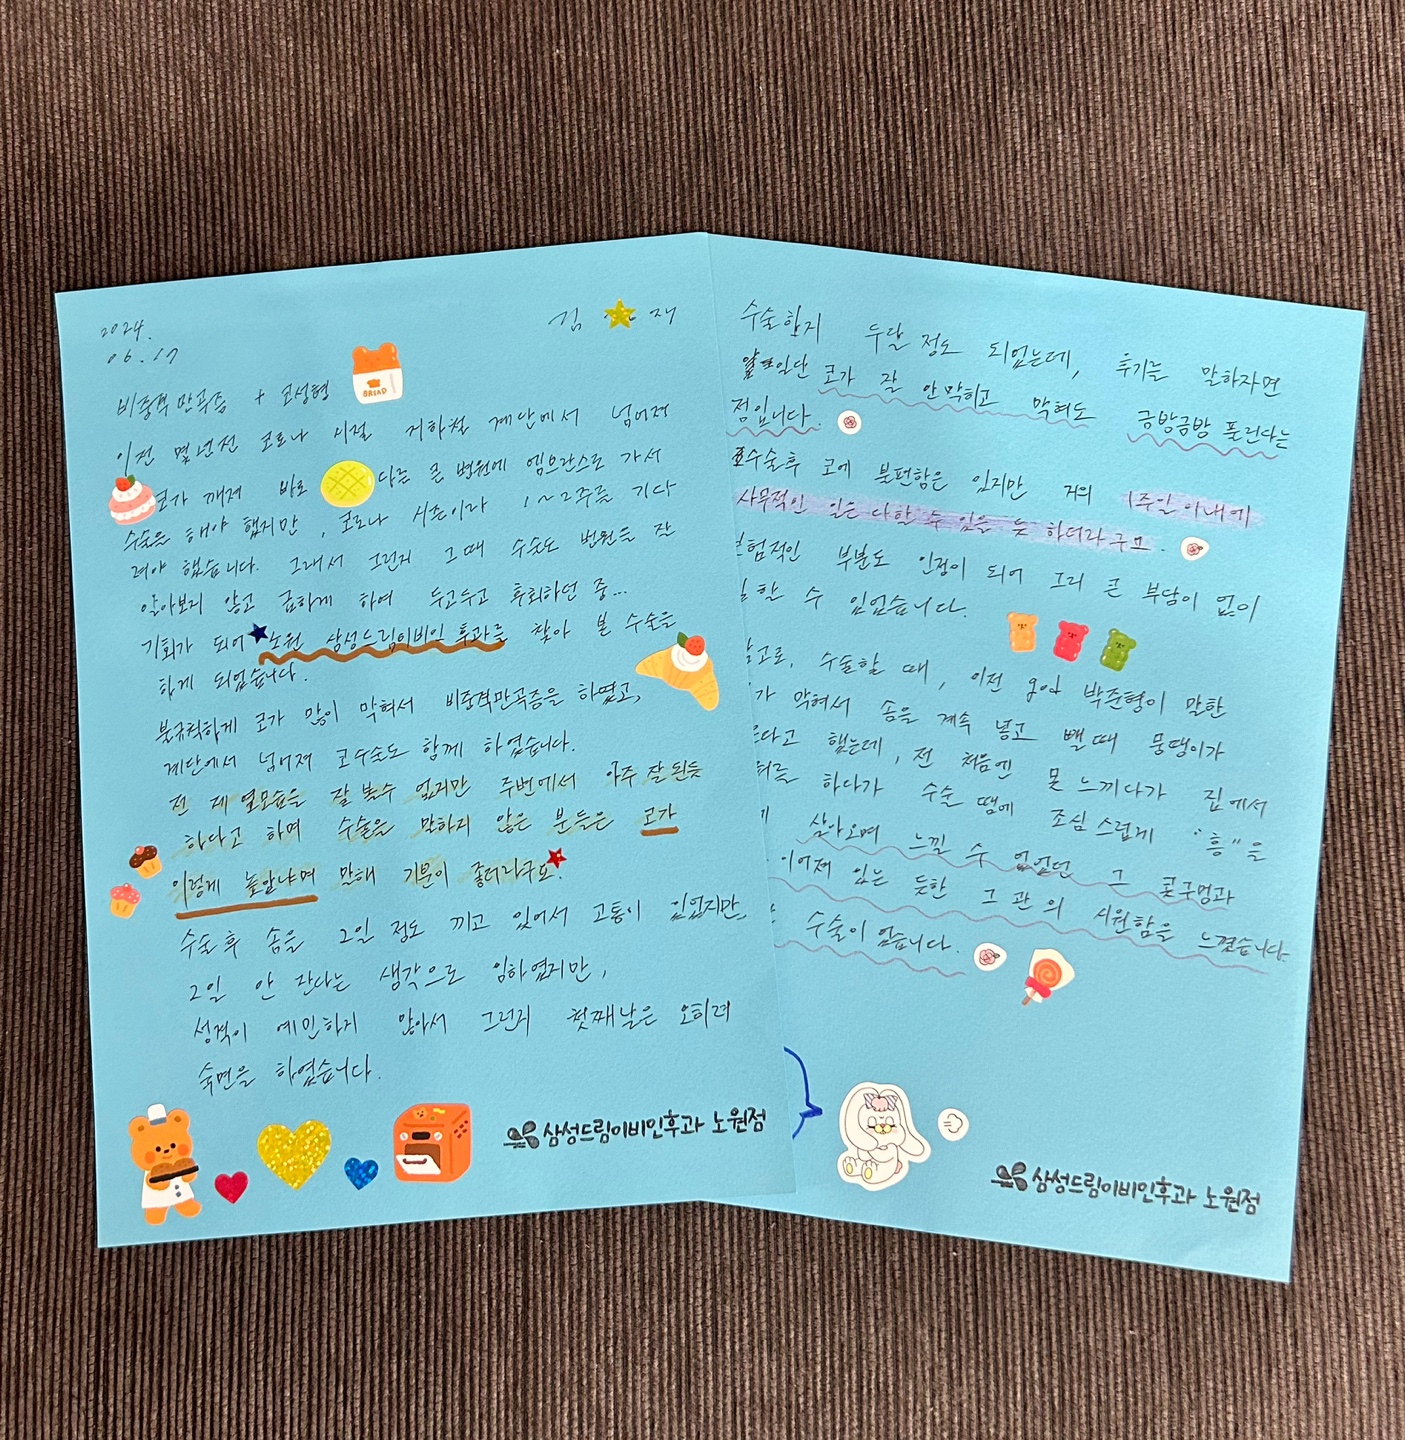 2024.
06.17
김 재
비중격만곡증 + 코성형
BREAD
이전 몇년전 코로나 시절 지하철 계단에서 넘어져
코가 깨져 바로 다른 큰 병원에 엠뷰란스로 가서
수술을 해야 했지만, 코로나 시즌이라 1~2주를 기다
려야 했습니다. 그래서 그런지 그때 수술도 병원을 잘
알아보지 않고 급하게 하여 두고두고 후회하던 중...
기회가 되어 노원 삼성드림이비인후과를 찾아 본 수술을
하게 되었습니다.
불규칙하게 코가 많이 막혀서 비중격만곡증을 하였고,
계단에서 넘어져 코수술도 함께 하였습니다.
전 제 옆모습을 잘 볼수 없지만 주변에서 아주 잘된듯
하다고 하며 수술을 말하지 않은 분들은 코가
이렇게 높았냐며 말해 기분이 좋더라구요.
수술후 솜을 2일 정도 끼고 있어서 고통이 있었지만,
2일 안 잔다는 생각으로 임하였지만,
성격이 예민하지 않아서 그런지 첫째날은 오히려
숙면을 하였습니다.
삼성드림이비인후과 노원점
수술한지 두달 정도 되었는데, 후기를 말하자면
일단 코가 잘 안막히고 막혀도 금방금방 풀린다는
점입니다.
수술후 코에 불편함은 있지만 거의 1주일 이내에
사무적인 일은 다할 수 있을 듯 하더라구요.
보험적인 부분도 인정이 되어 그리 큰 부담이 없이
할 수 있었습니다.
수술할 때, 이전 god 박준형이 말한
가 막혀서 솜을 계속 넣고 뺄때 뭉탱이가
다고 했는데, 전 처음엔 못 느끼다가 집에서
하다가 수술 땜에 조심스럽게 "흥"을
살아오며 느낄 수 없었던 그 콧구멍과
이어져 있는 듯한 그 관의 시원함을 느꼈습니다
수술이 없습니다.
삼성드림이비인후과 노원점